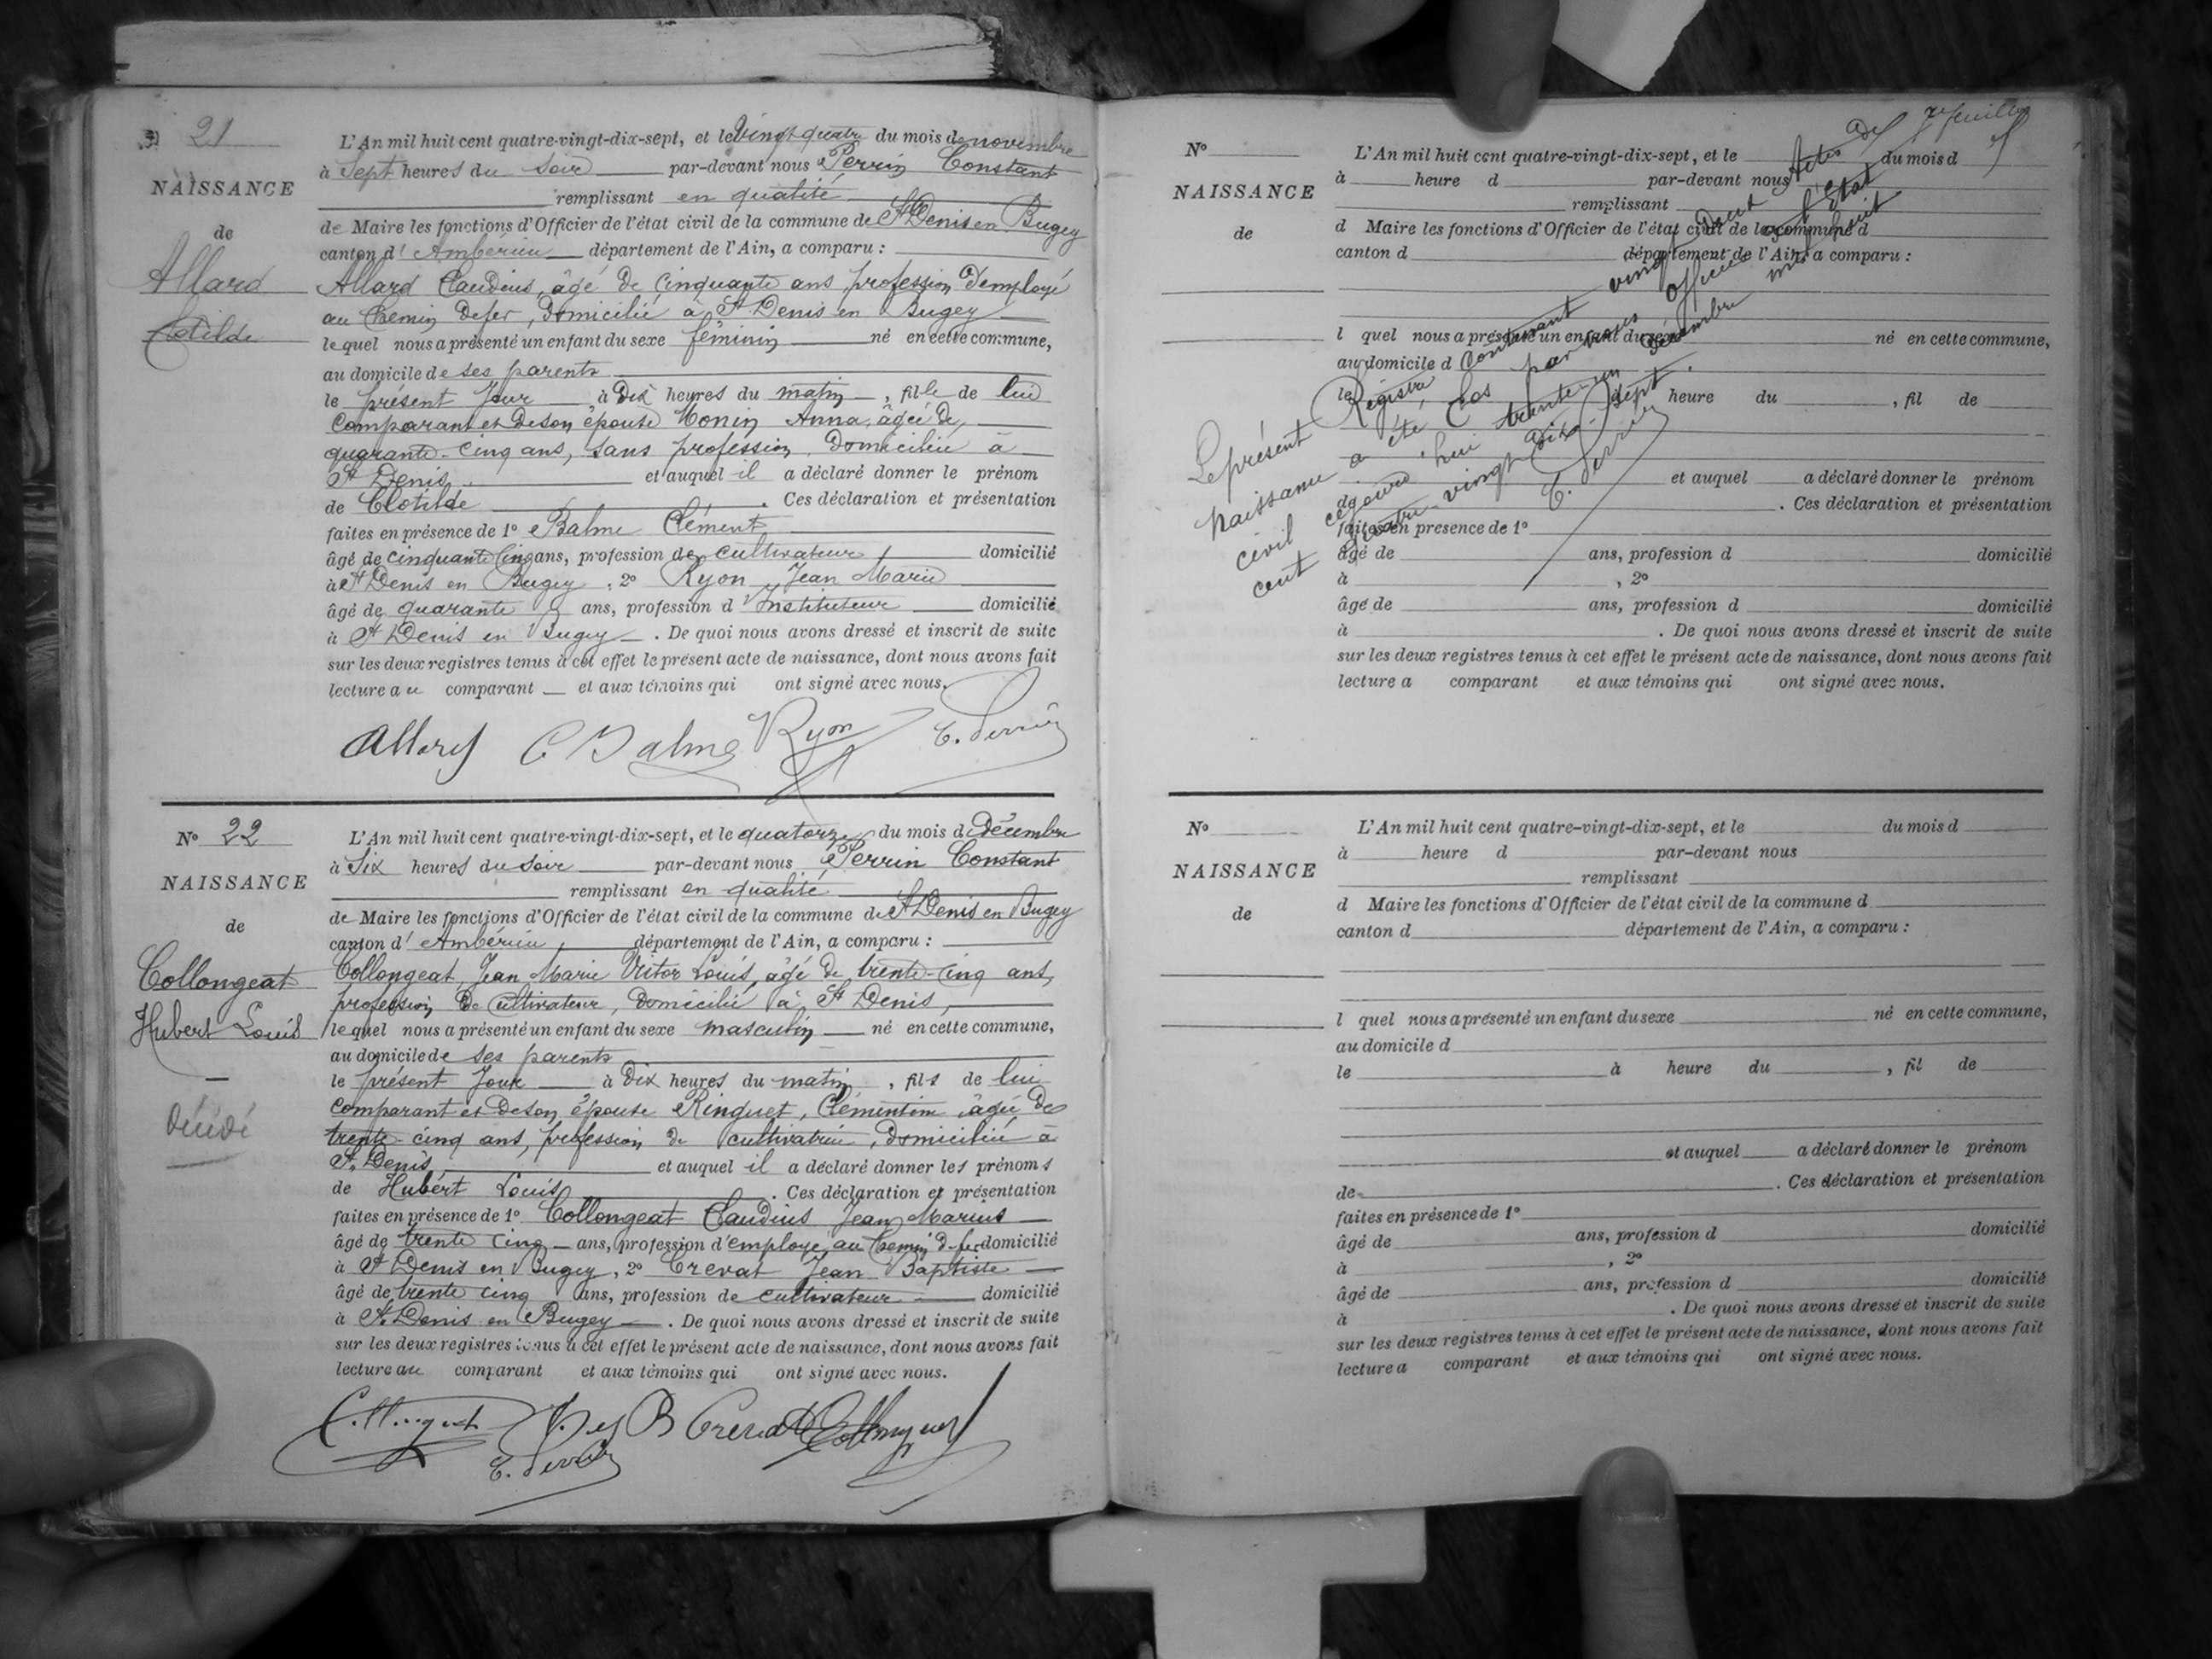 21
NAISSANCE
de
Allard
Clotilde
L'An mil huit cent quatre-vingt-dix-sept, et le vingt quatre du mois de novembre
à Sept heures du soir par-devant nous Perrin Constant
remplissant en qualité
de Maire les fonctions d'Officier de l'état civil de la commune de St Denis en Bugey
canton d'Ambérieu département de l'Ain, a comparu :
Allard Claudius, âgé de cinquante ans profession d'employé
au chemin de fer, domicilié à St Denis en Bugey
lequel nous a présenté un enfant du sexe féminin né en cette commune,
au domicile de ses parents
le présent jour à Dix heures du matin, fille de lui
comparant et de son épouse Monin Anna, âgée de
quarante-cinq ans, sans profession, domiciliée à
St Denis et auquel il a déclaré donner le prénom
de Clotilde. Ces déclaration et présentation
faites en présence de 1° Balme Clément
âgé de cinquante cinq ans, profession de cultivateur domicilié
à St Denis en Bugey, 2° Ryon Jean Marie
âgé de quarante ans, profession d'Instituteur domicilié
à St Denis en Bugey. De quoi nous avons dressé et inscrit de suite
sur les deux registres tenus à cet effet le présent acte de naissance, dont nous avons fait
lecture au comparant et aux témoins qui ont signé avec nous.
Allard C Balme Ryon C. Perrin
N° 22
NAISSANCE
de
Collongeat
Hubert Louis
décédé
L'An mil huit cent quatre-vingt-dix-sept, et le quatorze du mois de Décembre
à Six heures du soir par-devant nous Perrin Constant
remplissant en qualité
de Maire les fonctions d'Officier de l'état civil de la commune de St Denis en Bugey
canton d'Ambérieu département de l'Ain, a comparu :
Collongeat Jean Marie Victor Louis, âgé de trente-cinq ans,
profession de cultivateur, domicilié à St Denis,
lequel nous a présenté un enfant du sexe masculin né en cette commune,
au domicile de ses parents
le présent jour à Dix heures du matin, fils de lui
comparant et de son épouse Ringuet, Clémentine âgée de
trente-cinq ans, profession de cultivatrice, domiciliée à
St Denis et auquel il a déclaré donner les prénoms
de Hubert Louis. Ces déclaration et présentation
faites en présence de 1° Collongeat Claudius Jean Marius
âgé de trente cinq ans, profession d'employé au chemin de fer domicilié
à St Denis en Bugey, 2° Crevat Jean Baptiste
âgé de trente cinq ans, profession de cultivateur domicilié
à St Denis en Bugey. De quoi nous avons dressé et inscrit de suite
sur les deux registres tenus à cet effet le présent acte de naissance, dont nous avons fait
lecture au comparant et aux témoins qui ont signé avec nous.
Collongeat J B Crevat Collongeat
C. Perrin
N°
NAISSANCE
de
L'An mil huit cent quatre-vingt-dix-sept, et le du mois d
à heure d par-devant nous
remplissant
d Maire les fonctions d'Officier de l'état civil de la commune d
canton d département de l'Ain, a comparu :
l quel nous a présenté un enfant du sexe né en cette commune,
au domicile d
le heure du , fil de
et auquel a déclaré donner le prénom
de . Ces déclaration et présentation
faites en présence de 1°
âgé de ans, profession d domicilié
à , 2°
âgé de ans, profession d domicilié
à . De quoi nous avons dressé et inscrit de suite
sur les deux registres tenus à cet effet le présent acte de naissance, dont nous avons fait
lecture a comparant et aux témoins qui ont signé avec nous.
Le présent Registre contenant vingt Deux Actes de
naissance a été clos par nous officier de l'Etat
civil cejourd'hui trente-un décembre mil huit
cent quatre-vingt Dix-Sept.
C. Perrin
N°
NAISSANCE
de
L'An mil huit cent quatre-vingt-dix-sept, et le du mois d
à heure d par-devant nous
remplissant
d Maire les fonctions d'Officier de l'état civil de la commune d
canton d département de l'Ain, a comparu :
l quel nous a présenté un enfant du sexe né en cette commune,
au domicile d
le à heure du , fil de
et auquel a déclaré donner le prénom
de . Ces déclaration et présentation
faites en présence de 1°
âgé de ans, profession d domicilié
à , 2°
âgé de ans, profession d domicilié
à . De quoi nous avons dressé et inscrit de suite
sur les deux registres tenus à cet effet le présent acte de naissance, dont nous avons fait
lecture a comparant et aux témoins qui ont signé avec nous.